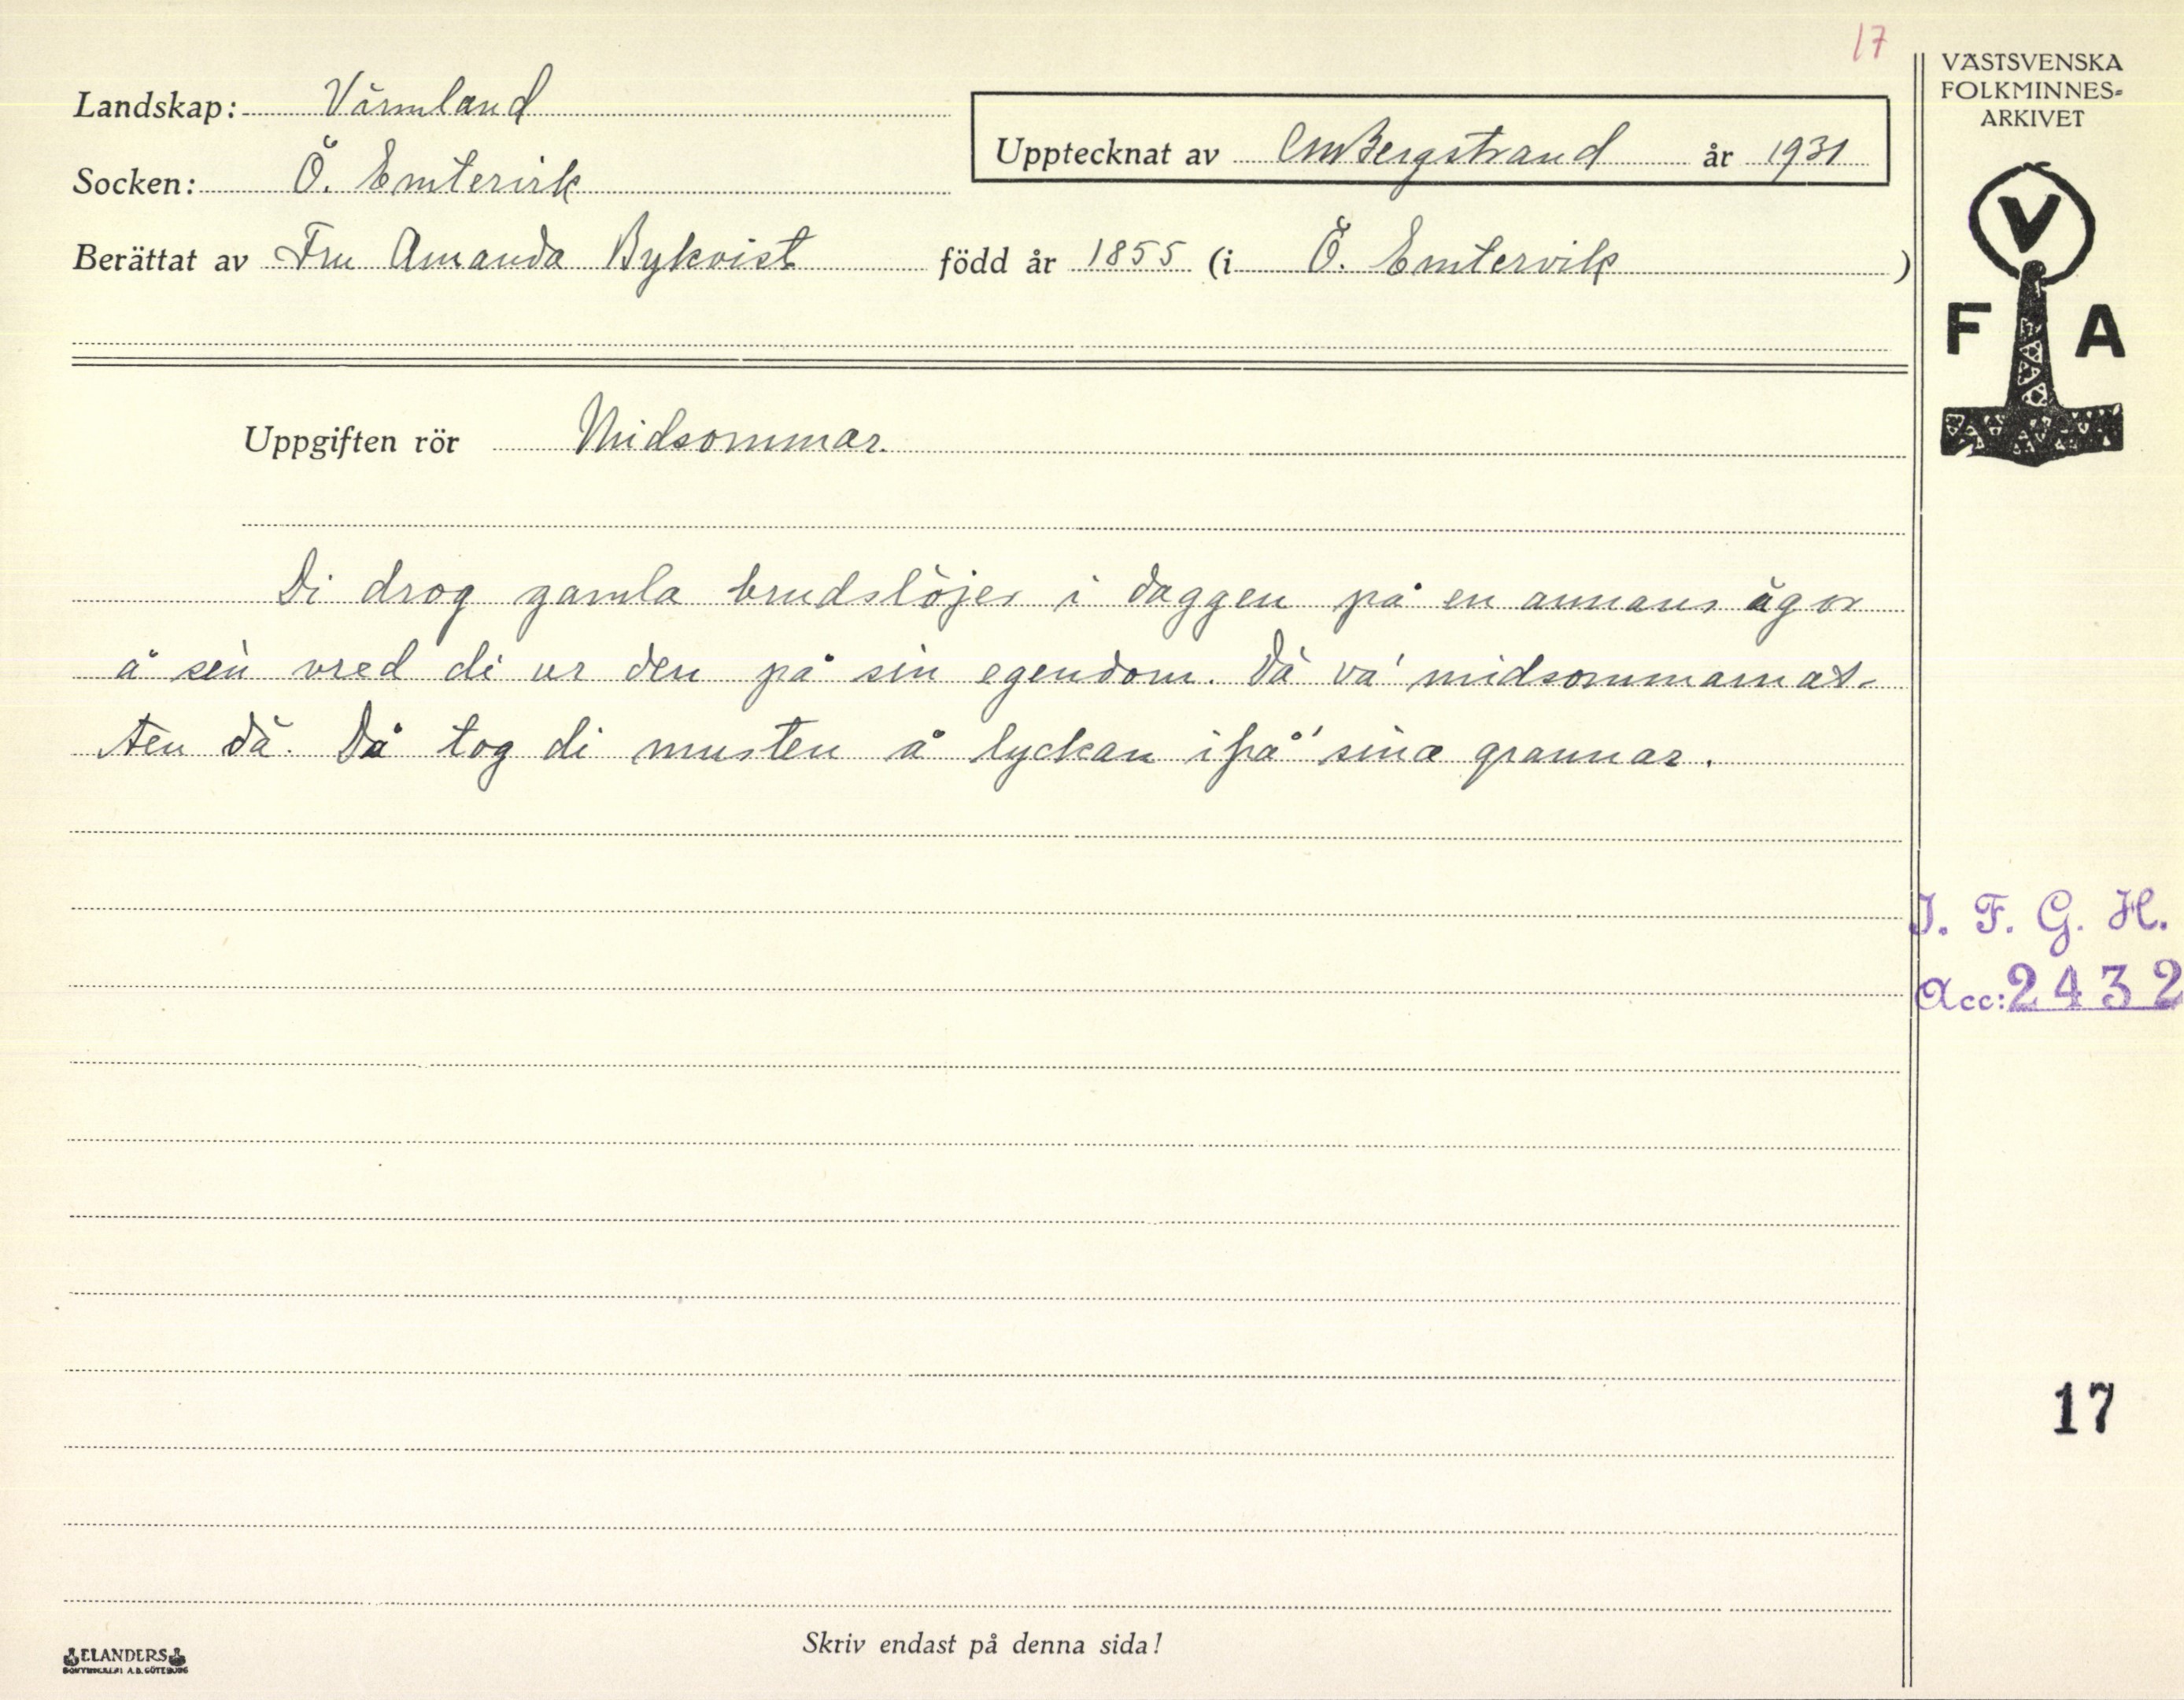 17
VÄSTSVENSKA
FOLKMINNES-
ARKIVET
Landskap: Värmland
Upptecknat av CMBergstrand år 1931
Socken: Ö. Emtervik
Berättat av Fru Amanda Bykvist född år 1855 (i Ö. Emtervik )
V
F A
Uppgiften rör Midsommar.
Di drog gamla brudslöjer i daggen på en annans ägor
å sen vred di ur den på sin egendom. Dä va' midsommarnat-
ten dä. Då tog di musten å lyckan ifrå' sina grannar.
I. F. G. H.
Acc: 2432
17
Skriv endast på denna sida!
ELANDERS
BOKTRYCKERI A.B. GÖTEBORG